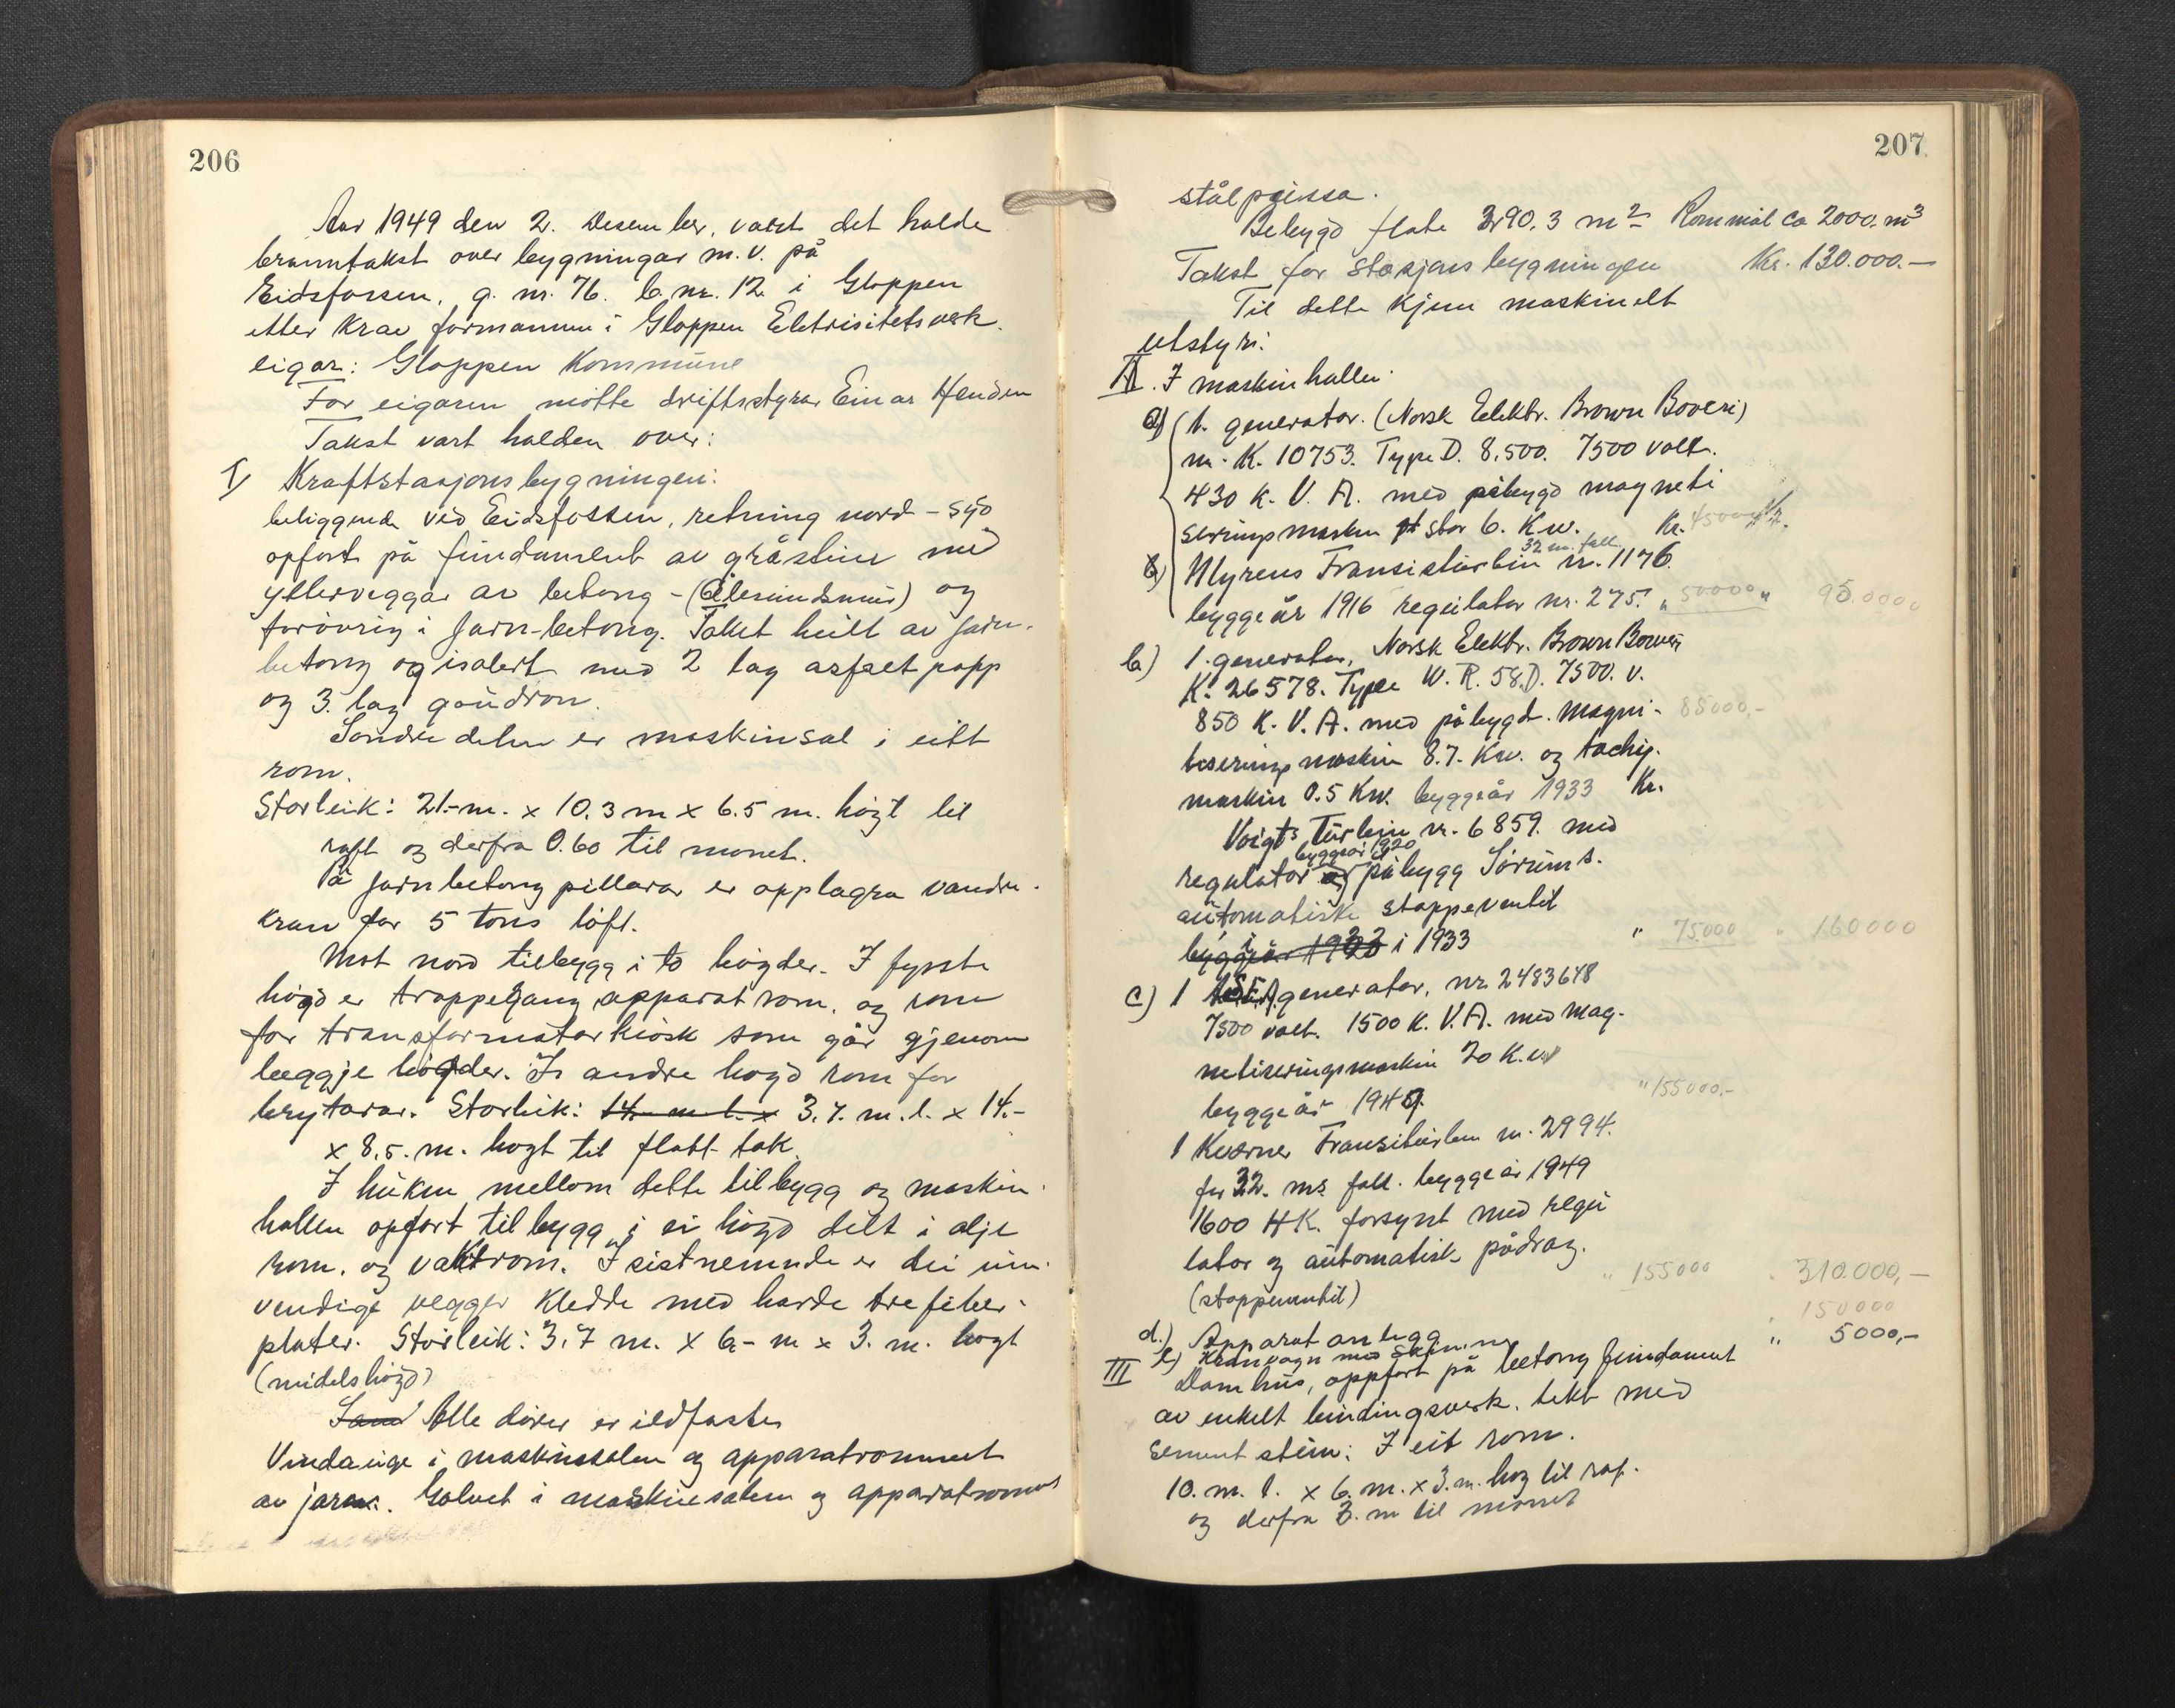 206
Aar 1949 den 2. Desember, vart det halde
branntakst over bygningar m.v. på
Eidsfossen, g. nr. 76. b. nr. 12 i Gloppen
etter krav formannen i Gloppen Eletrisitetsverk.
eigar: Gloppen Kommune
For eigaren møtte driftsstyrar Einar Henden
Takst vart halden over:
I, Kraftstasjonsbygningen:
beliggende ved Eidsfossen, retning nord - syd
opført på fundament av gråstein med
ytterveggar av betong - (Ålesundsmur) og
forøvrig i Jarn-betong. Taket heilt av jarn-
betong og isolert med 2 lag asfalt papp
og 3. lag goudron.
Søndre delen er maskinsal i eitt
rom.
Storleik: 21.- m. x 10.3 m x 6.5 m. høgt til
raft og derfra 0.60 til mønet.
På jarnbetong pillarar er opplagra vandre-
kran for 5 tons løft.
Mot nord tilbygg i to høgder. I fyrste
høgd er trappegang, apparatrom, og rom
for transformatorkiosk som går gjenom
beggje høgder. I andre høgd rom for
brytarar. Storleik: 14.- m l. x 3.7. m. l. x 14.-
x 8.5. m. høgt til flatt tak.
I huken mellom dette tilbygg og maskin-
hallen opført tilbygg i ei høgd delt i olje
rom. og vaktrom. I sistnemnde er dei inn-
vendige vegger kledde med harde trefiber-
plater. Storleik: 3.7 m. x 6.- m x 3. m. høgt
(midelshøgd)
Samt Alle dører er ildfaste
Vindauge i maskinsalen og apparatrommet
av jarn. Golvet i maskinsalen og apparatrommet
207
stålpussa.
Bebygd flate 290.3 m² Rommål ca 2000. m³
Takst for stasjonsbygningen Kr. 130.000.-
Til dette kjem maskinelt
utstyr:
II. I maskinhallen:
a) 1. generator. (Norsk Elektr. Brown Boveri)
nr. K. 10753. Type D. 8.500. 7500 volt.
430 K. V. A. med påbygd magneti
seringsmaskin stor 6. Kw. Kr. 45000
32 m. fall.
Myrens Fransisturbin nr. 1176.
byggeår 1916 regulator nr. 275. " 50000 " 95.000
b) 1. generator, Norsk Elektr. Brown Boveri
K. 26578. Type W. R. 58.D. 7500. v.
850 K. V. A. med påbygd. Magni- 85000,-
tiseringsmaskin 8.7. Kw. og tachy.
maskin 0.5 Kw. byggeår 1933 Kr.
Voigts Turbin nr. 6859. med
byggeår 1920
regulator og påbygg Sørums.
automatiske stoppeventil
byggeår 1933 i 1933 " 75.000 " 160000
c) 1 ASEA generator, nr. 2483648
7500 volt. 1500 K. V. A. med mag-
netiseringsmaskin 20 K.w
byggeår 1949. " 155000,-
1 Kværner Fransisturbin nr. 2994.
for 32. ms fall. byggeår 1949
1600 HK. forsynt med regu
lator og automatisk pådrag.
(stoppeventil) " 155000 " 310.000,-
d.) Apparatanlegg " 150000
e) Kranvogn med skinner " 5000,-
III Damhus, oppført på betong fundament
av enkelt bindingsverk. tekt med
sement stein: I eit rom.
10. m. l. x 6. m. x 3. m. høg til raf.
og derfra 3. m til mønet